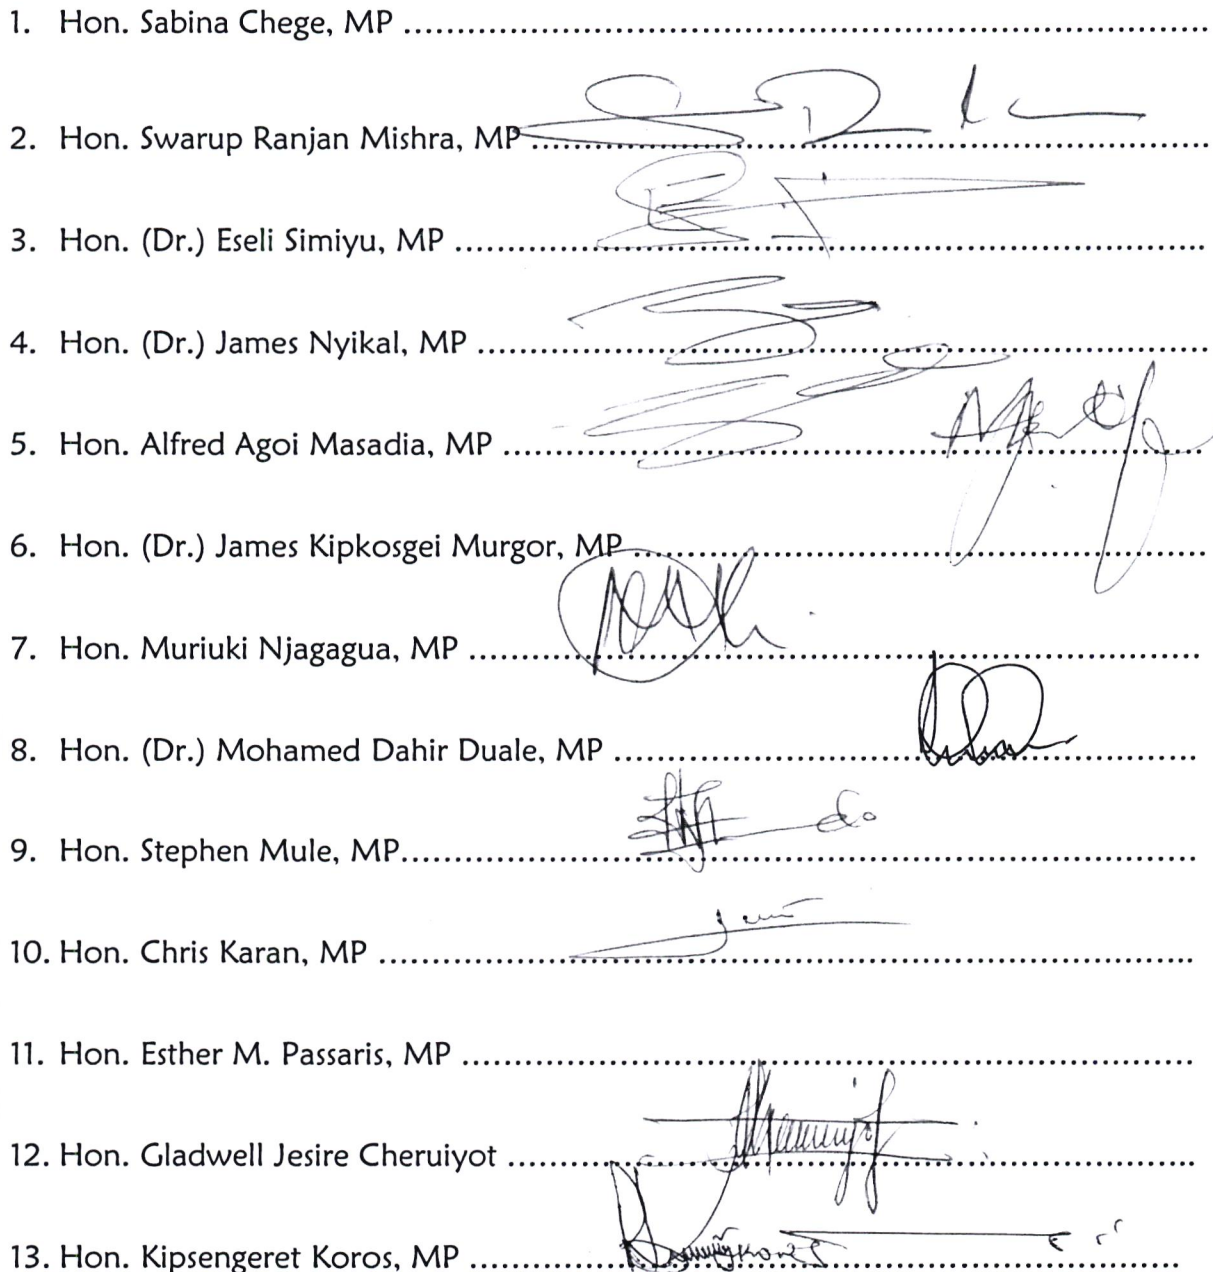 1. Hon. Sabina Chege, MP ........................................................................
2. Hon. Swarup Ranjan Mishra, MP ........................................................................
3. Hon. (Dr.) Eseli Simiyu, MP ........................................................................
4. Hon. (Dr.) James Nyikal, MP ........................................................................
5. Hon. Alfred Agoi Masadia, MP ........................................................................
6. Hon. (Dr.) James Kipkosgei Murgor, MP ........................................................................
7. Hon. Muriuki Njagagua, MP ........................................................................
8. Hon. (Dr.) Mohamed Dahir Duale, MP ........................................................................
9. Hon. Stephen Mule, MP........................................................................
10. Hon. Chris Karan, MP ........................................................................
11. Hon. Esther M. Passaris, MP ........................................................................
12. Hon. Gladwell Jesire Cheruiyot ........................................................................
13. Hon. Kipsengeret Koros, MP ........................................................................